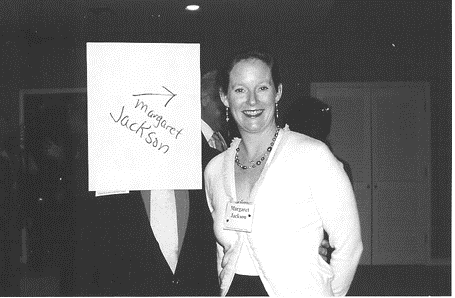 margaret
Jackson
Margaret
Jackson